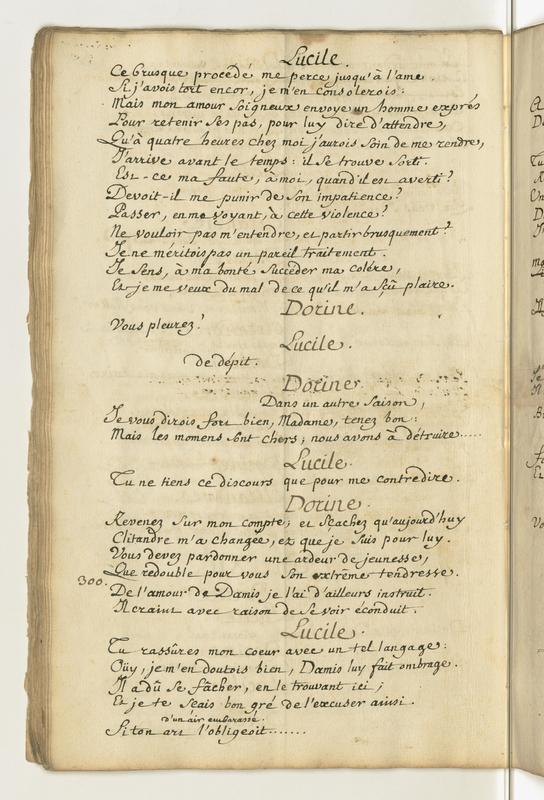 Lucile.
Ce brusque procedé me perce jusqu'à l'ame.
Si j'avois tort encor, je m'en consolerois:
Mais mon amour soigneux envoye un homme exprés
Pour retenir ses pas, pour luy dire d'attendre,
Qu'à quatre heures chez moi j'aurois soin de me rendre,
J'arrive avant le temps: il se trouve sorti.
Est-ce ma faute, à moi, quand il est averti?
Devoit-il me punir de son impatience?
Passer, en me voyant, à cette violence?
Ne vouloir pas m'entendre, et partir brusquement?
Je ne méritois pas un pareil traitement.
Je sens, à ma bonté succéder ma colére,
Et je me veux du mal de ce qu'il m'a sçû plaire.
Dorine.
Vous pleurez?
Lucile.
de dépit.
Dorine.
Dans un autre saison,
Je vous dirois fort bien, Madame, tenez bon:
Mais les momens sont chers; nous avons à détruire.....
Lucile.
Tu ne tiens ce discours que pour me contredire.
Dorine.
Revenez sur mon compte; et sçachez qu'aujourd'huy
Clitandre m'a changée, et que je suis pour luy.
Vous devez pardonner une ardeur de jeunesse,
Que redouble pour vous son extrême tendresse.
300. De l'amour de Damis je l'ai d'ailleurs instruit.
Il craint avec raison de se voir éconduit.
Lucile.
Tu rassûres mon coeur avec un tel langage:
Oüy, je m'en doutois bien, Damis luy fait ombrage.
Il a dû se fâcher, en le trouvant ici;
Et je te sçais bon gré de l'excuser ainsi.
d'un air embarassé.
Si ton art l'obligeoit.......